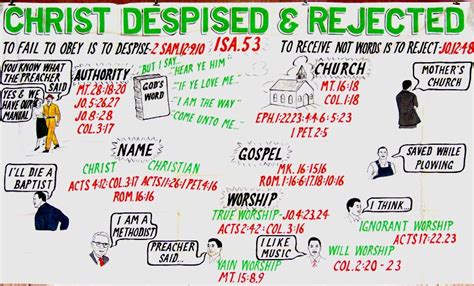 CHRIST DESPISED & REJECTED
TO FAIL TO OBEY IS TO DESPISE-2 SAM.12:9,10
ISA.53
TO RECEIVE NOT WORDS IS TO REJECT-JO.12:48
YOU KNOW WHAT THE PREACHER SAID
YES & WE HAVE OUR MANUAL
AUTHORITY
MT.28:18-20
JO.5:26,27
JO.8:28
COL.3:17
GOD'S WORD
"BUT I SAY...
"HEAR YE HIM"
"IF YE LOVE ME..
"I AM THE WAY"
COME UNTO ME..."
CHURCH
MT.16:18
COL.1:18
EPH.1:22,23:4:4-6:5:23
1 PET.2:5
MOTHER'S CHURCH
NAME
CHRIST CHRISTIAN
ACTS 4:12-COL.3:17 ACTS 11:26-1 PET.4:16
ROM.16:16
GOSPEL
MK.16:15,16
ROM.1:16-6:17,18-10:16
SAVED WHILE PLOWING
I'LL DIE A BAPTIST
WORSHIP
TRUE WORSHIP-JO.4:23,24
ACTS 2:42:COL.3:16
I THINK.
IGNORANT WORSHIP
ACTS 17:22,23
I AM A METHODIST
PREACHER SAID...
VAIN WORSHIP
MT.15:8,9
I LIKE MUSIC
WILL WORSHIP
COL.2:20-23